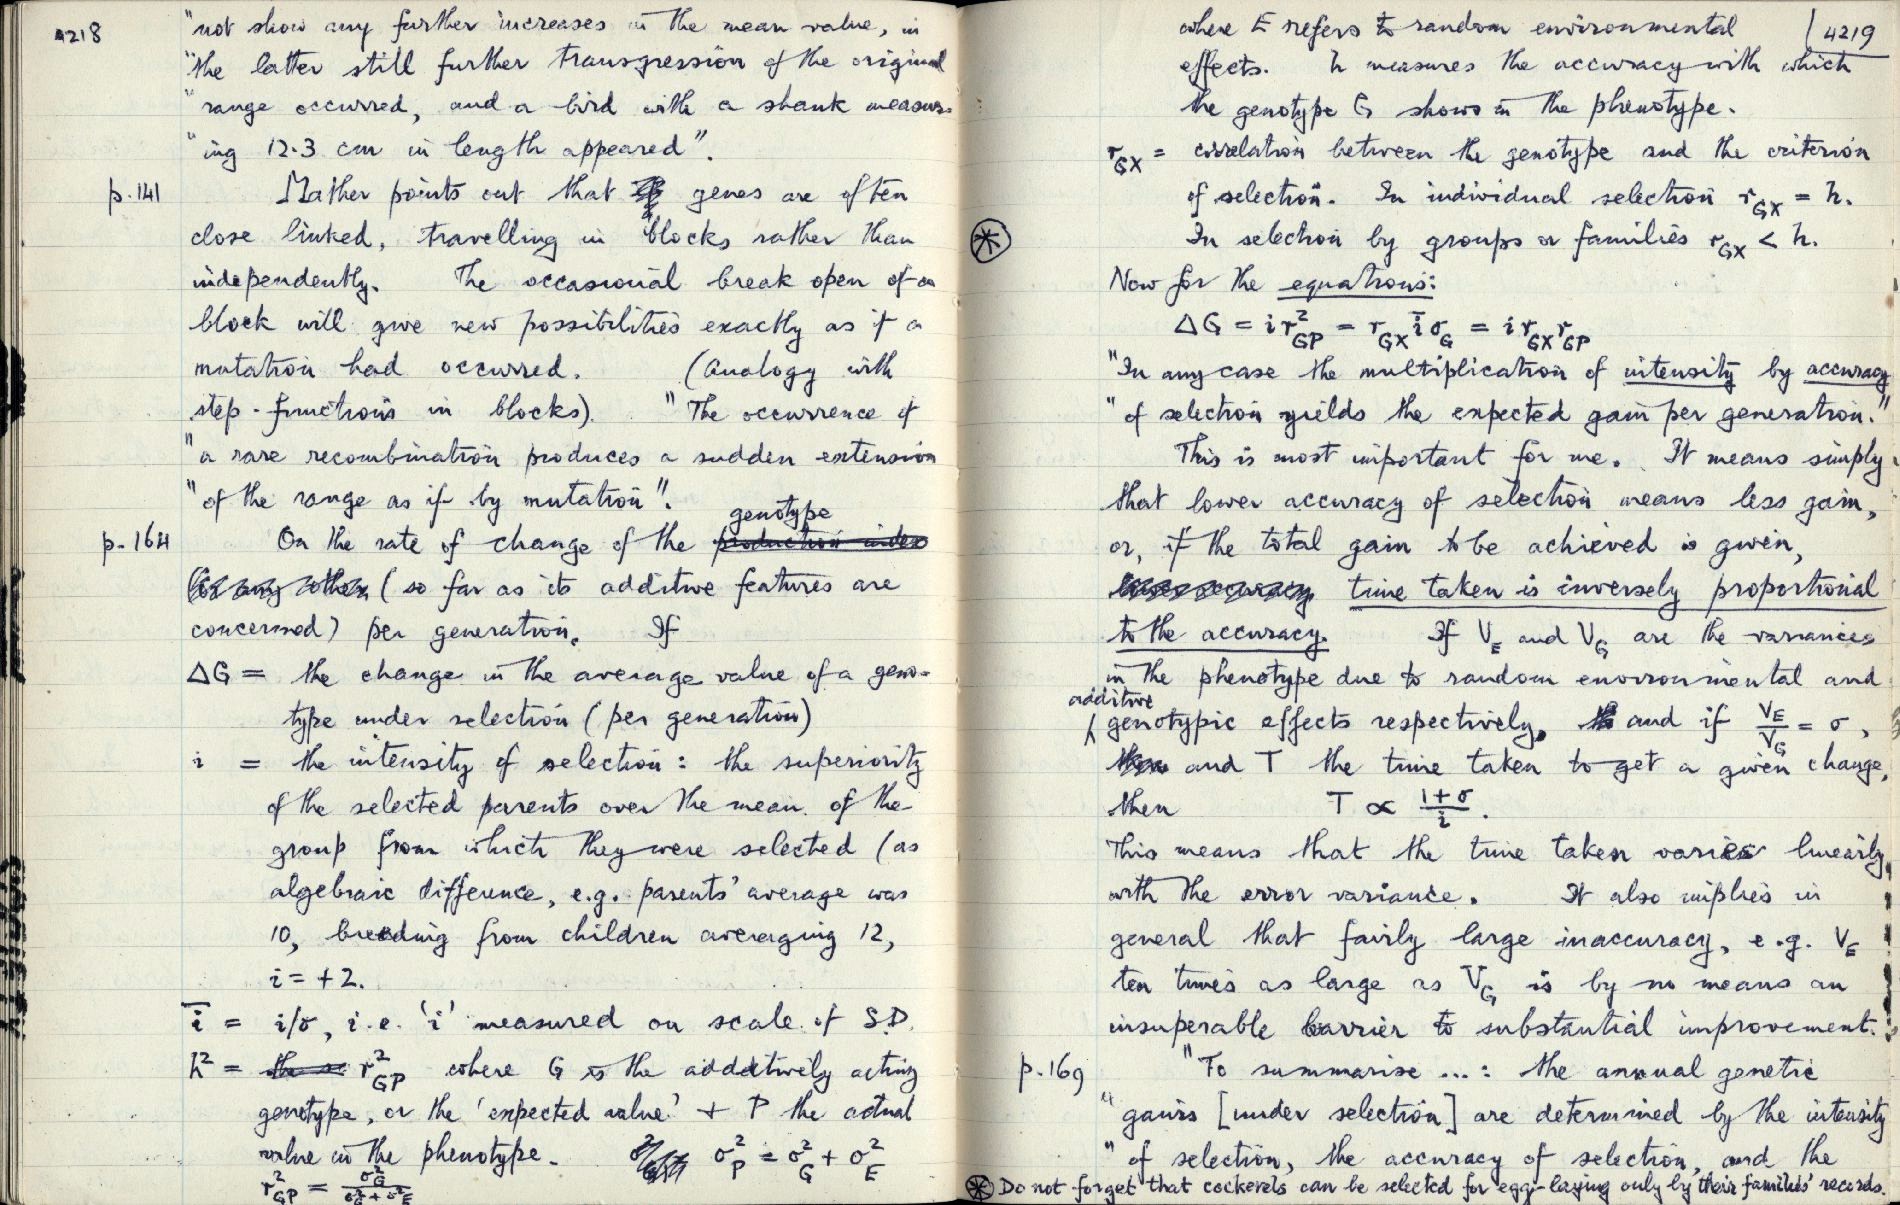 4218
"not show any further increases in the mean value, in
"the latter still further transgression of the original
"range occurred, and a bird with a shank measur-
"ing 12.3 cm in length appeared".
p. 141 Mather points out that genes are often
close linked, travelling in blocks rather than
independently. The occasional break open of a
block will give new possibilities exactly as if a
mutation had occurred. (Analogy with
step-functions in blocks). "The occurrence of
"a rare recombination produces a sudden extension
"of the range as if by mutation".
genotype
p. 164 On the rate of change of the production index
(so far as its additive features are
concerned) per generation. If
ΔG = the change in the average value of a geno-
type under selection (per generation)
i = the intensity of selection: the superiority
of the selected parents over the mean of the
group from which they were selected (as
algebraic difference, e.g. parents' average was
10, breeding from children averaging 12,
i = +2.
i̅ = i/σ, i.e. 'i' measured on scale of S.D.
h² = r²GP where G is the additively acting
genotype, or the 'expected value' + P the actual
value in the phenotype. σ²P = σ²G + σ²E
r²GP = σ²G / (σ²G + σ²E)
4219
where E refers to random environmental
effects. h measures the accuracy with which
the genotype G shows in the phenotype.
rGX = correlation between the genotype and the criterion
of selection. In individual selection rGX = h.
⊛ In selection by groups or families rGX < h.
Now for the equations:
ΔG = i r²GP = rGX i̅ σG = i rGX rGP
"In any case the multiplication of intensity by accuracy
"of selection yields the expected gain per generation."
This is most important for me. It means simply
that lower accuracy of selection means less gain,
or, if the total gain to be achieved is given,
time taken is inversely proportional
to the accuracy. If VE and VG are the variances
in the phenotype due to random environmental and
additive
genotypic effects respectively, and if VE/VG = σ,
and T the time taken to get a given change,
then T ∝ (1+σ)/i.
This means that the time taken varies linearly
with the error variance. It also implies in
general that fairly large inaccuracy, e.g. VE
ten times as large as VG is by no means an
insuperable barrier to substantial improvement.
p. 169 "To summarise ...: the annual genetic
"gains [under selection] are determined by the intensity
"of selection, the accuracy of selection, and the
⊛ Do not forget that cockerels can be selected for egg-laying only by their families' records.